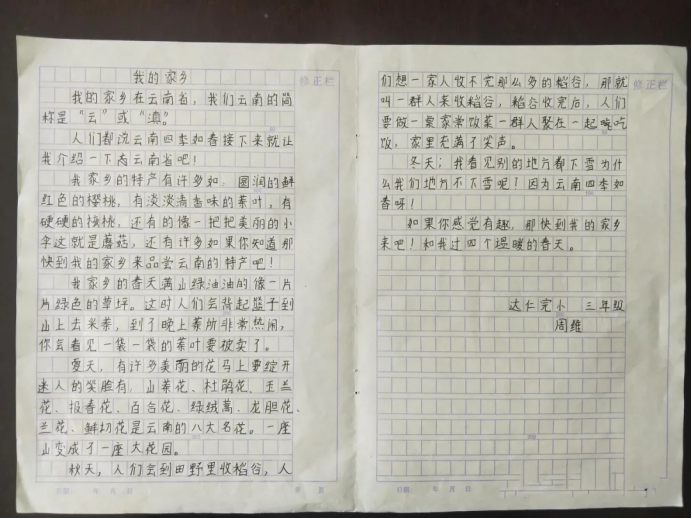 我的家乡
修正栏
我的家乡在云南省，我们云南的简
称是“云”或“滇”。
人们都说云南四季如春接下来就让
我介绍一下云南省吧！
我家乡的特产有许多如：圆润的鲜
红色的樱桃，有淡淡清香味的茶叶，有
硬硬的核桃，还有的像一把把美丽的小
伞这就是蘑菇，还有许多如果你知道那
快到我的家乡来品尝云南的特产吧！
我家乡的春天满山绿油油的像一片
片绿色的草坪。这时人们会背起篮子到
山上去采茶，到了晚上茶所非常热闹，
你会看见一袋一袋的茶叶要被卖了。
夏天，有许多美丽的花马上要绽开
迷人的笑脸有，山茶花、杜鹃花、玉兰
花、报春花、百合花、绿绒蒿、龙胆花、
兰花、鲜切花是云南的八大名花。一座
山变成了一座大花园。
秋天，人们会到田野里收稻谷，人
日期： 年 月 日
修正栏
们想一家人收不完那么多的稻谷，那就
叫一群人来收稻谷，稻谷收完后，人们
要做一桌家常饭菜一群人聚在一起吃
饭，家里充满了笑声。
冬天，我看见别的地方都下雪为什
么我们地方不下雪呢？因为云南四季如
春呀！
如果你感觉有趣，那快到我的家乡
来吧！和我过四个温暖的春天。
达仁完小 三年级
周维
日期： 年 月 日